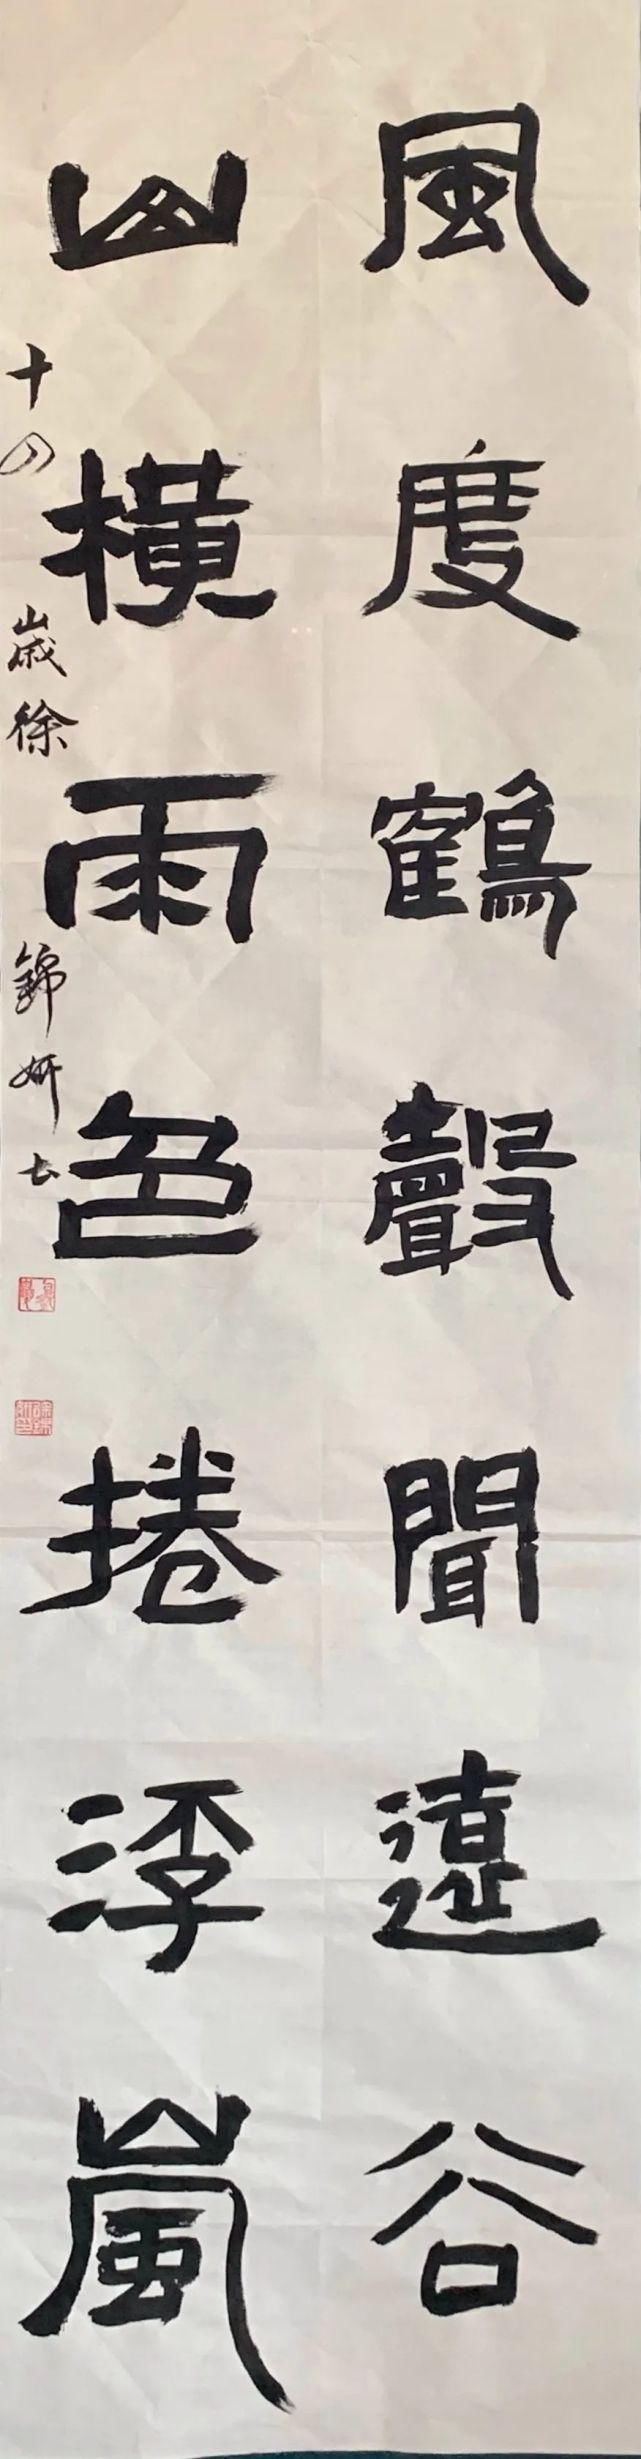 風度鶴聲聞遠谷
山橫雨色捲浮嵐
十四歲徐錦妍书